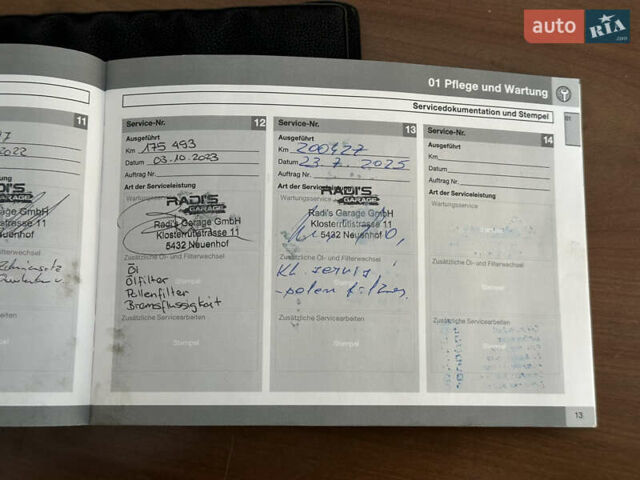 auto RIA.com
01 Pflege und Wartung
Servicedokumentation und Stempel
01
11
2022
Service-Nr. 12
Ausgeführt
Km 175 493
Datum 03.10.2023
Auftrag Nr.
Art der Serviceleistung
Wartungsservice
RADI'S GARAGE
Radi's Garage GmbH
Klosterrütistrasse 11
5432 Neuenhof
Zusätzliche Öl- und Filterwechsel
Öl
Ölfilter
Pollenfilter
Bremsflüssigkeit
Zusätzliche Servicearbeiten
Stempel
Service-Nr. 13
Ausgeführt
Km 200427
Datum 23.7.2025
Auftrag Nr.
Art der Serviceleistung
RADI'S GARAGE
Radi's Garage GmbH
Klosterrütistrasse 11
5432 Neuenhof
Zusätzliche Öl- und Filterwechsel
Kl. servis
Zusätzliche Servicearbeiten
Stempel
Service-Nr. 14
Ausgeführt
Km
Datum
Auftrag Nr.
Art der Serviceleistung
Wartungsservice
Zusätzliche Öl- und Filterwechsel
Stempel
Zusätzliche Servicearbeiten
Stempel
13